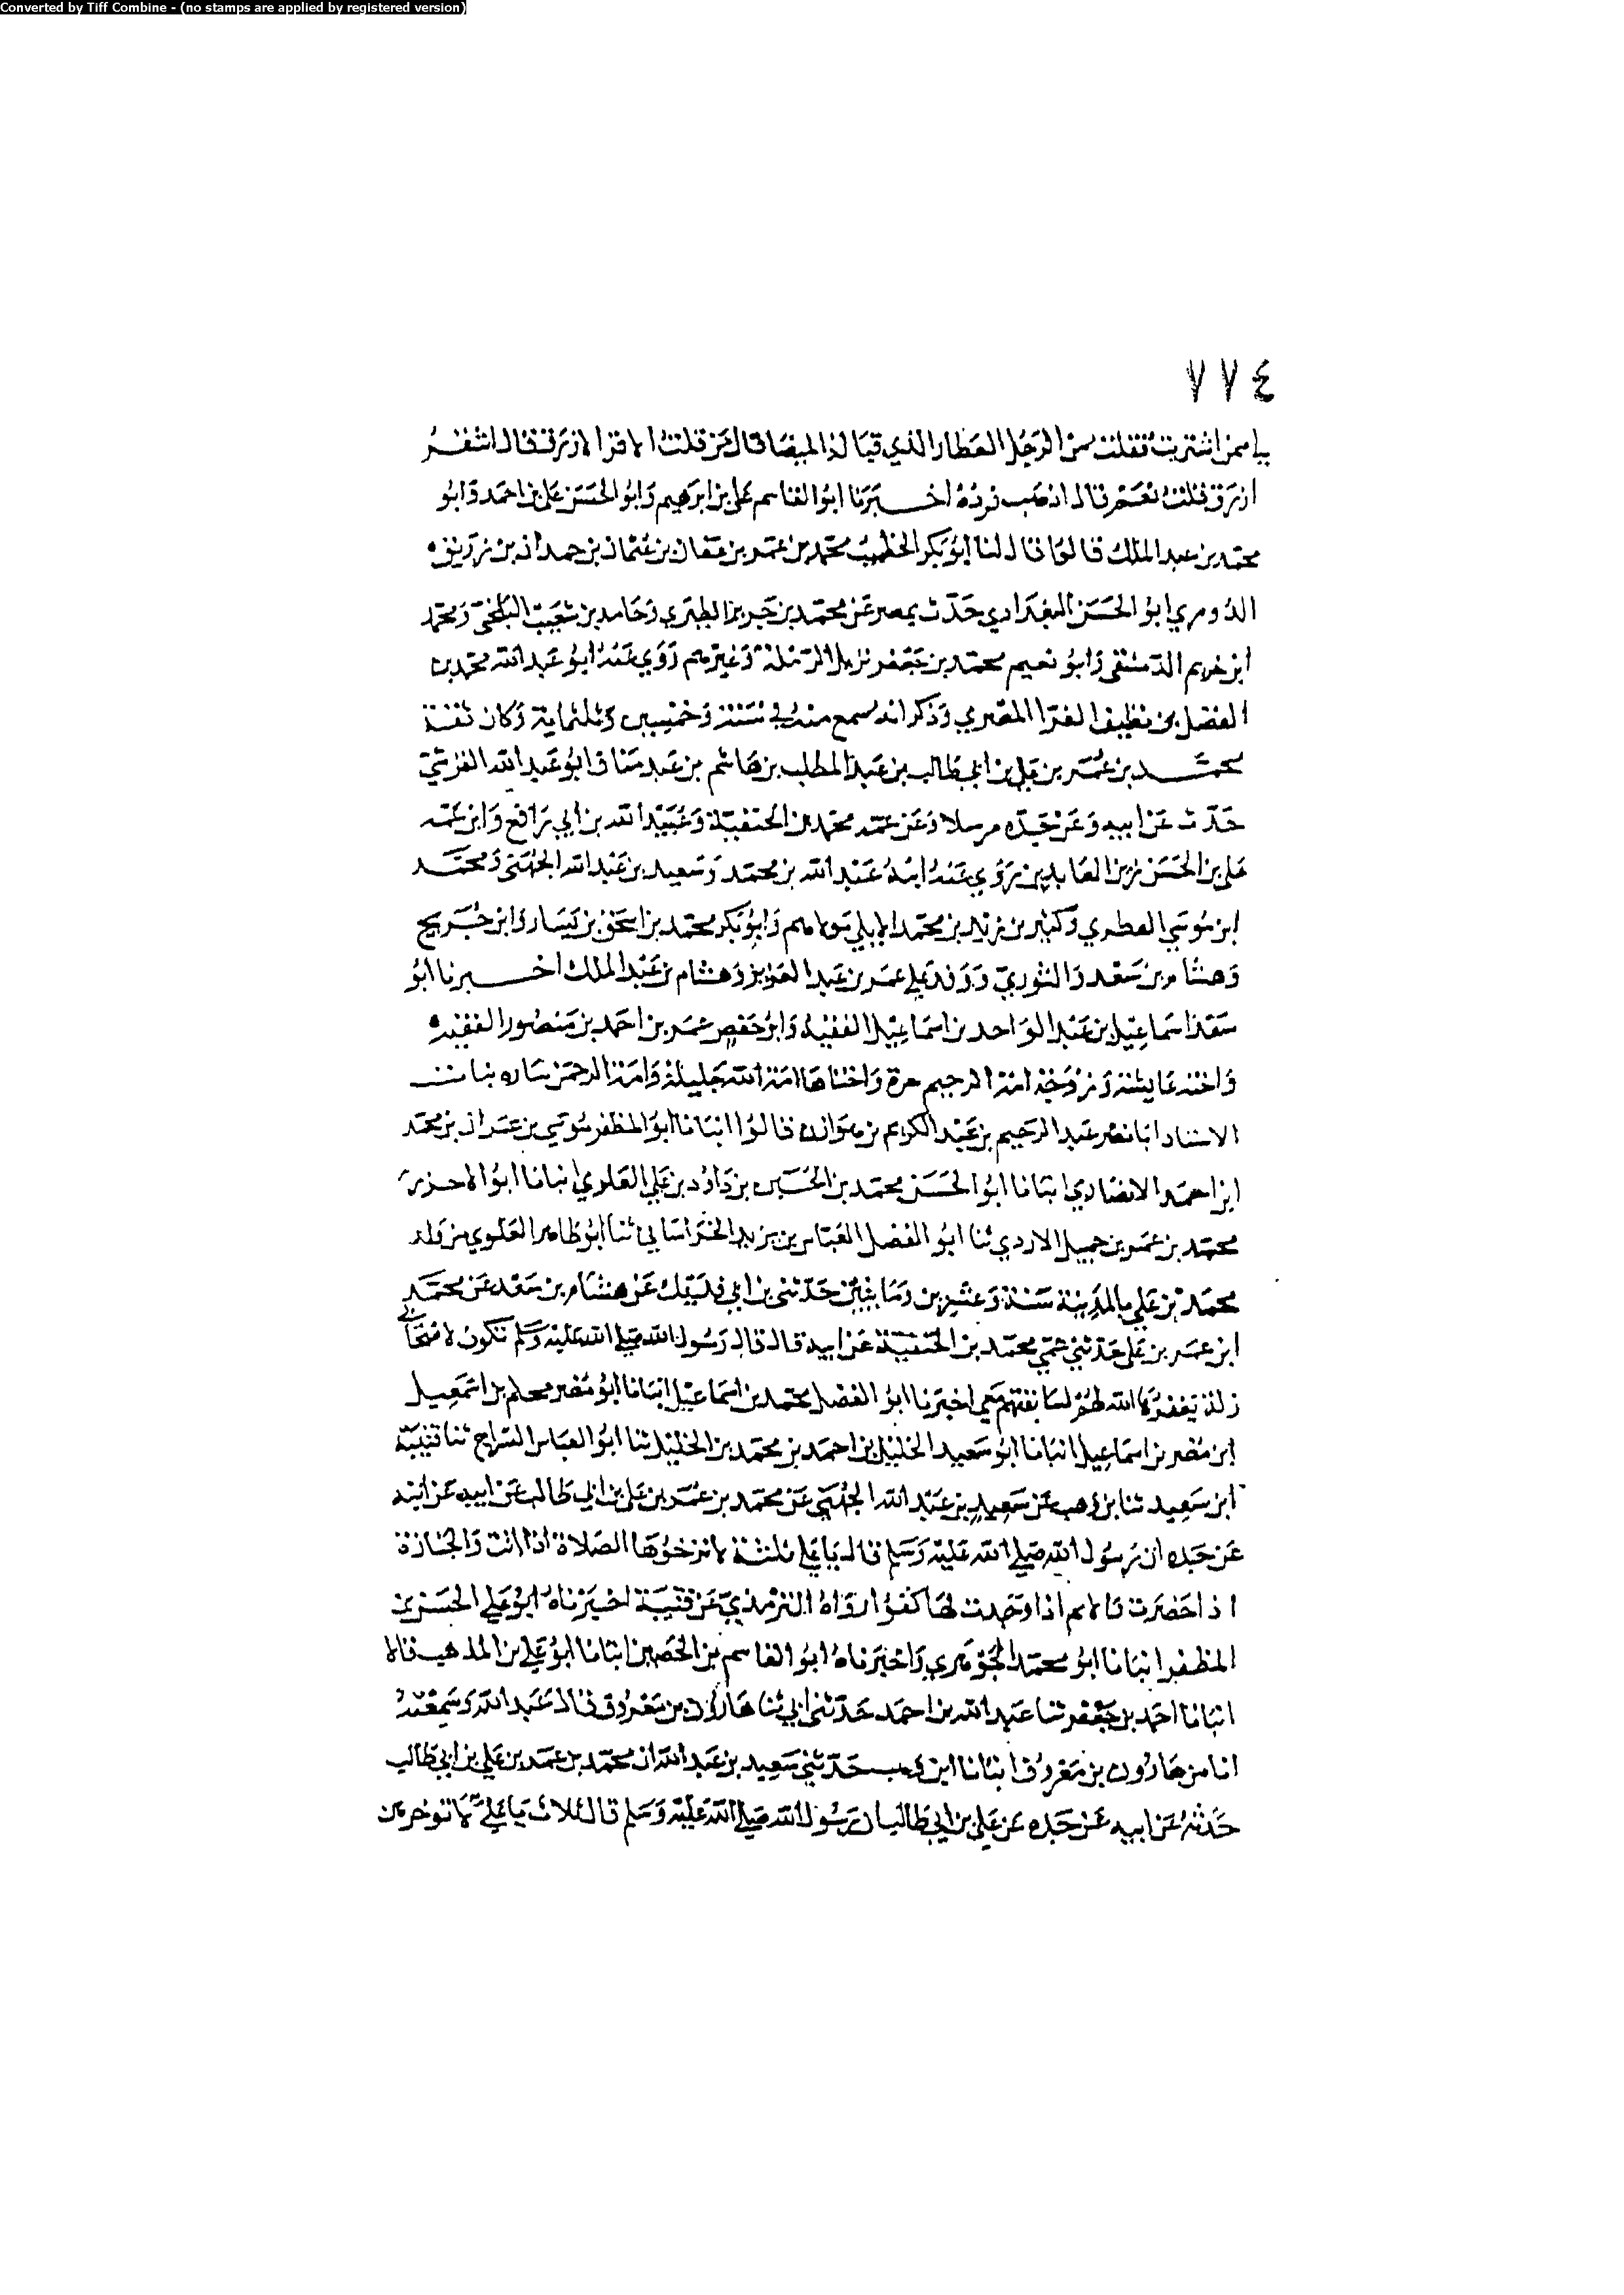 Converted by Tiff Combine - (no stamps are applied by registered version)
٧٧٤
ممن اشتريت فقلت من الرجل العطار الذي قال قلت الازرق فقال اشقر
ازرق فقلت نعم قال اذهب فرده اخبرنا ابو القاسم علي بن ابرهيم وابو الحسن علي بن احمد وابو
محمد بن عبد الملك قالوا قال لنا ابو بكر الخطيب محمد بن عمر بن عفان بن عثمان بن حمدان بن زريق
الدوري ابو الحسن البغدادي حدث بمصر عن محمد بن جرير الطبري وحامد بن شعيب البلخي ومحمد
ابن خريم الدمشقي وابو نعيم محمد بن جعفر نزيل الرملة وغيرهم روي عنه ابو عبد الله محمد بن
الفضل بن نظيف الفرا المصري وذكر انه سمع منه في سنة وخمسين وثلثماية وكان ثقة
محمد بن عمر بن علي بن ابي طالب بن عبد المطلب بن هاشم بن عبد مناف ابو عبد الله القرشي
حدث عن ابيه وعن جده مرسلا وعن عمه محمد بن الحنفية وعبيد الله بن ابي رافع وابن عمه
علي بن الحسين زين العابدين روي عنه ابنه عبد الله بن محمد وسعيد بن عبد الله الجهني ومحمد
ابن موسي الفطري وكثير بن زيد بن محمد الايلي مولاهم وابو بكر محمد بن اسحق بن يسار وابن جريج
وهشام بن سعد والثوري ووفد علي عمر بن عبد العزيز وهشام بن عبد الملك اخبرنا ابو
سعد اسماعيل بن عبد الواحد بن اسماعيل الفقيه وابو حفص عمر بن احمد بن منصور الفقيه
واخته عايشة وزوجته امة الرحيم حرة واختاها امة الله جليلة وامة الرحمن ساره بنات
الاستاد ابا نصر عبد الرحيم بن عبد الكريم بن هوازن قالوا انبانا ابو المظفر موسي بن عمران بن محمد
ابن احمد الانصاري انبانا ابو الحسن محمد بن الحسين بن داود بن علي العلوي انبانا ابو الاحرز
محمد بن عمر بن جميل الازدي ثنا ابو الفضل العباس بن يزيد الخراساني ثنا ابو طاهر العلوي من ولد
محمد بن علي بالمدينة سنة وعشرين ومايتين حدثني بن ابي فديك عن هشام بن سعد عن محمد
ابن عمر بن علي حدثني عمي محمد بن الحنفية عن ابيه قال قال رسول الله صلي الله عليه وسلم تكون لاصحابي
زلة يغفرها الله لهم لسابقتهم معي اخبرنا ابو الفضل محمد بن اسماعيل انبانا ابو مضر محلم بن اسمعيل
ابن مضر بن اسماعيل انبانا ابو سعيد الخليل بن احمد بن محمد بن الخليل ثنا ابو العباس السراج ثنا قتيبة
ابن سعيد ثنا بن وهب عن سعيد بن عبد الله الجهني عن محمد بن عمر بن علي بن ابي طالب عن ابيه
عن جده ان رسول الله صلي الله عليه وسلم قال يا علي ثلثة لا توخرها الصلاة اذا اتت والجنازة
اذا حضرت والايم اذا وجدت لها كفوا رواه الترمذي عن قتيبة اخبرناه ابو علي الحسن بن
المظفر انبانا ابو محمد الجوهري واخبرناه ابو القاسم بن الحصين انبانا ابو علي بن المذهب قالا
انبانا احمد بن جعفر ثنا عبد الله بن احمد حدثني ابي ثنا هارون بن معروف قال عبد الله وسمعته
انا من هارون بن معروف انبانا ابن وهب حدثني سعيد بن عبد الله ان محمد بن عمر بن علي بن ابي طالب
حدثه عن ابيه عن جده عن علي بن ابي طالب ان رسول الله صلي الله عليه وسلم قال ثلاث يا علي لا توخرهن